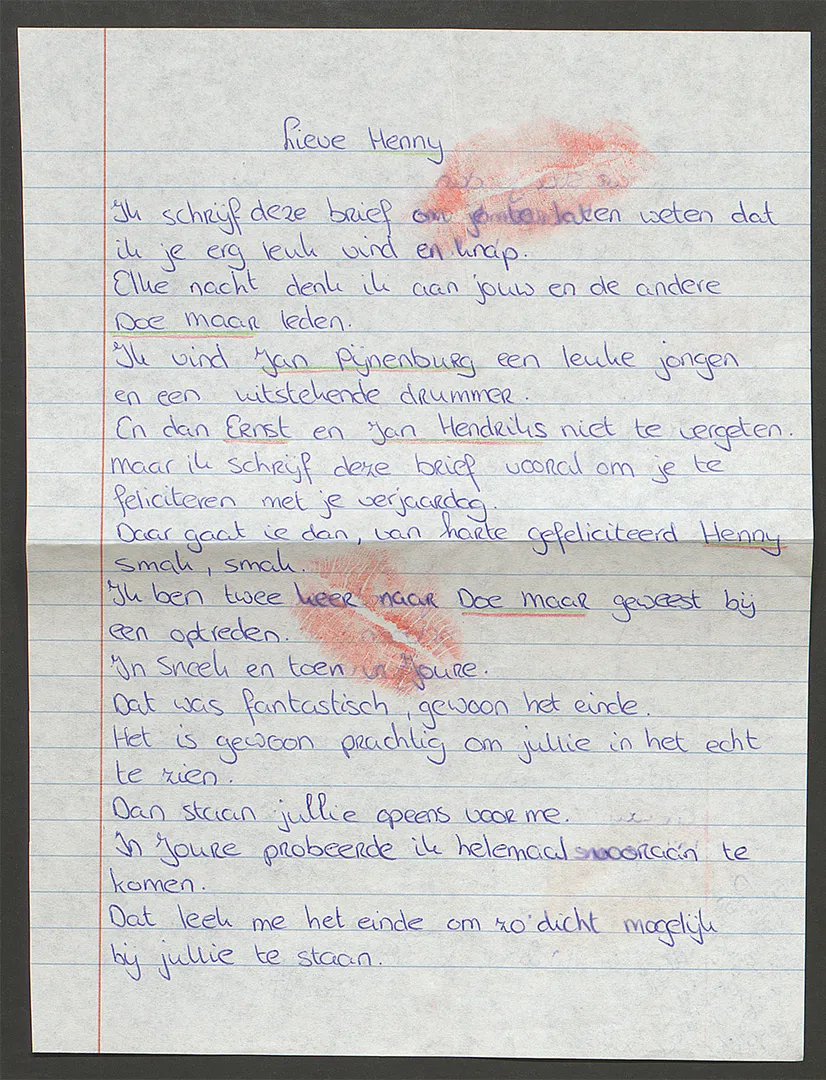 Lieve Henny
Ik schrijf deze brief om je te laten weten dat
ik je erg leuk vind en knap.
Elke nacht denk ik aan jouw en de andere
Doe maar leden.
Ik vind Jan Pijnenburg een leuke jongen
en een uitstekende drummer.
En dan Ernst en Jan Hendriks niet te vergeten.
maar ik schrijf deze brief vooral om je te
feliciteren met je verjaardag.
Daar gaat ie dan, van harte gefeliciteerd Henny
smak, smak.
Ik ben twee keer naar Doe maar geweest bij
een optreden.
In Sneek en toen in Joure.
Dat was fantastisch, gewoon het einde.
Het is gewoon prachtig om jullie in het echt
te zien.
Dan staan jullie opeens voor me.
In Joure probeerde ik helemaal vooraan te
komen.
Dat leek me het einde om zo'dicht mogelijk
bij jullie te staan.